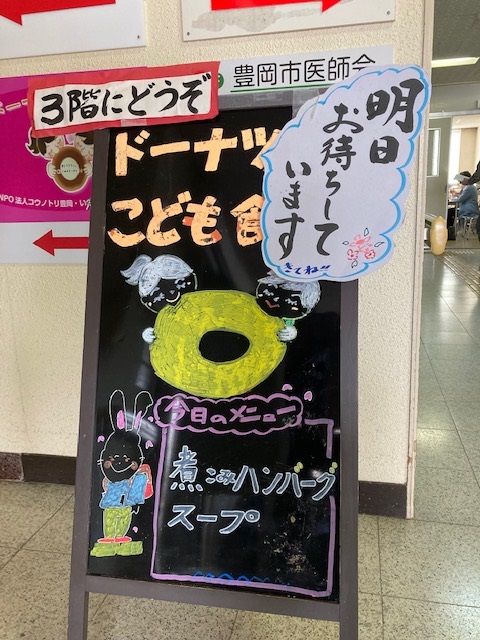 豊岡市医師会
3階にどうぞ
明日
お待ちして
います
きてね!!
ドーナツ
こども食
NPO法人コウノトリ豊岡・い
今日のメニュー
煮こみハンバーグ
スープ